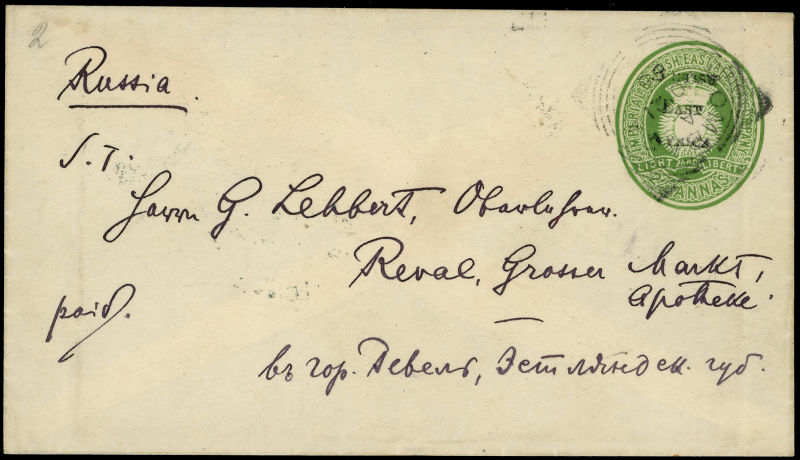 2
Russia.
S. T.
Herrn G. Lebbert, Oberlehrer.
Reval, Grosser Markt,
Apotheke.
paid.
въ гор. Ревель, Эстляндск. губ.
IMPERIAL BRITISH EAST AFRICA COMPANY
BRITISH
EAST
AFRICA
LIGHT AND LIBERTY
ANNAS